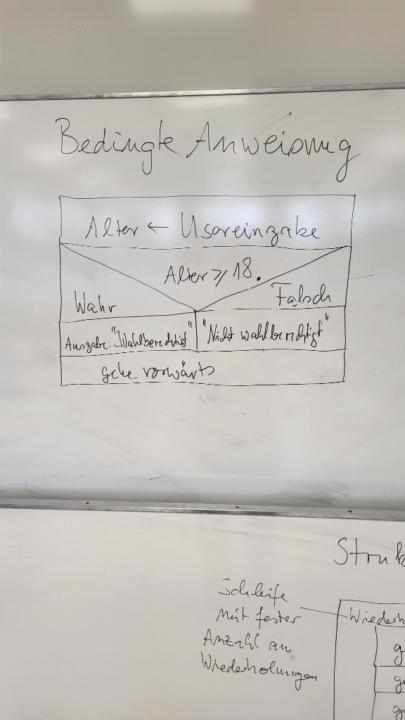 Bedingte Anweisung
Alter ← Usereingabe
Alter ≥ 18.
Wahr
Falsch
Ausgabe: "Wahlberechtigt"
"Nicht wahlberechtigt"
gehe vorwärts
Struk
Schleife
mit fester
Anzahl an
Wiederholungen
Wiederh
g
ge
ge